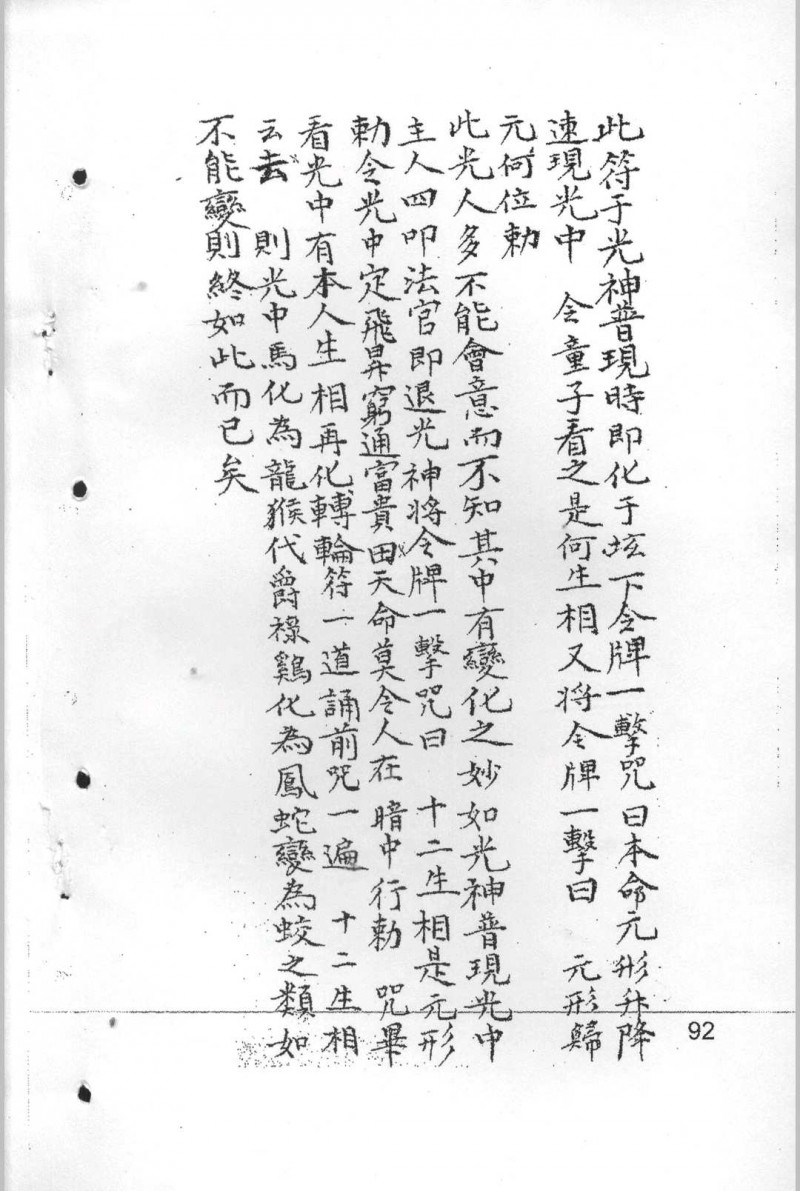 此符于光神普現時即化于坛下令牌一擊咒曰本命元形升降
速現光中 令童子看之是何生相又將令牌一擊曰 元形歸
元何位勅
此光人多不能會意而不知其中有變化之妙如光神普現光中
主人四叩法官即退光神將令牌一擊咒曰 十二生相是元形
勅令光中定飛昇窮通富貴田天命莫令人在暗中行勅 咒畢
看光中有本人生相再化轉輪符一道誦前咒一遍 十二生相
云去 則光中馬化為龍猴代爵祿鷄化為鳳蛇變為蛟之類如
不能變則終如此而已矣
92